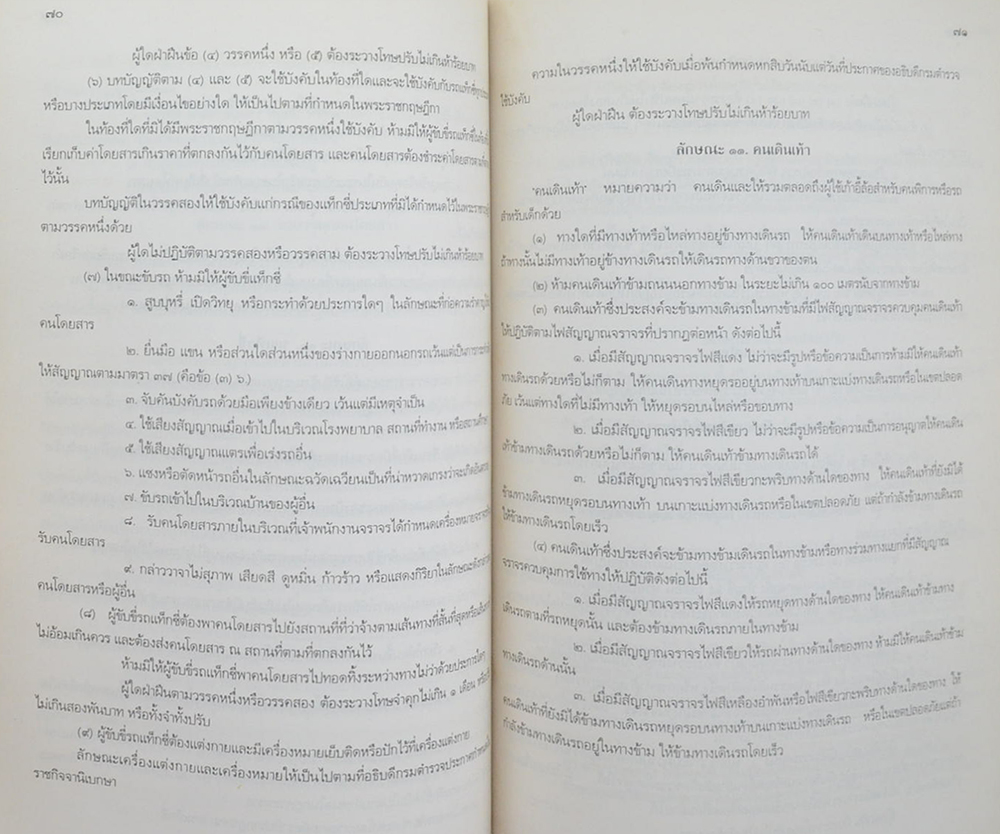 ๗๐
ผู้ใดฝ่าฝืนข้อ (๔) วรรคหนึ่ง หรือ (๕) ต้องระวางโทษปรับไม่เกินห้าร้อยบาท
(๖) บทบัญญัติตาม (๔) และ (๕) จะใช้บังคับในท้องที่ใดและจะใช้บังคับกับรถแท็กซี่
หรือบางประเภทโดยมีเงื่อนไขอย่างใด ให้เป็นไปตามที่กำหนดในพระราชกฤษฎีกา
ในท้องที่ใดที่มิได้มีพระราชกฤษฎีกาตามวรรคหนึ่งใช้บังคับ ห้ามมิให้ผู้ขับขี่รถแท็กซี่
เรียกเก็บค่าโดยสารเกินราคาที่ตกลงกันไว้กับคนโดยสาร และคนโดยสารต้องชำระค่าโดยสาร
ไว้นั้น
บทบัญญัติในวรรคสองให้ใช้บังคับแก่กรณีของแท็กซี่ประเภทที่มิได้กำหนดไว้ใน
ตามวรรคหนึ่งด้วย
ผู้ใดไม่ปฏิบัติตามวรรคสองหรือวรรคสาม ต้องระวางโทษปรับไม่เกินห้าร้อยบาท
(๗) ในขณะขับรถ ห้ามมิให้ผู้ขับขี่แท็กซี่
๑. สูบบุหรี่ เปิดวิทยุ หรือกระทำด้วยประการใดๆ ในลักษณะที่ก่อความรำคาญ
คนโดยสาร
๒. ยื่นมือ แขน หรือส่วนใดส่วนหนึ่งของร่างกายออกนอกรถเว้นแต่เป็นการ
ให้สัญญาณตามมาตรา ๓๗ (คือข้อ (๓) ๖.)
๓. จับคันบังคับรถด้วยมือเพียงข้างเดียว เว้นแต่มีเหตุจำเป็น
๔. ใช้เสียงสัญญาณเมื่อเข้าไปในบริเวณโรงพยาบาล สถานที่ทำงาน หรือสถานศึกษา
๕. ใช้เสียงสัญญาณแตรเพื่อเร่งรถอื่น
๖. แซงหรือตัดหน้ารถอื่นในลักษณะฉวัดเฉวียนเป็นที่น่าหวาดเกรงว่าจะเกิด
๗. ขับรถเข้าไปในบริเวณบ้านของผู้อื่น
๘. รับคนโดยสารภายในบริเวณที่เจ้าพนักงานจราจรได้กำหนดเครื่องหมาย
รับคนโดยสาร
๙. กล่าววาจาไม่สุภาพ เสียดสี ดูหมิ่น ก้าวร้าว หรือแสดงกิริยาในลักษณะ
คนโดยสารหรือผู้อื่น
(๘) ผู้ขับขี่รถแท็กซี่ต้องพาคนโดยสารไปยังสถานที่ที่ว่าจ้างตามเส้นทางที่สั้นที่สุดหรือ
ไม่อ้อมเกินควร และต้องส่งคนโดยสาร ณ สถานที่ตามที่ตกลงกันไว้
ห้ามมิให้ผู้ขับขี่รถแท็กซี่พาคนโดยสารไปทอดทิ้งระหว่างทางไม่ว่าด้วยประการใดๆ
ผู้ใดฝ่าฝืนตามวรรคหนึ่งหรือวรรคสอง ต้องระวางโทษจำคุกไม่เกิน ๑ เดือน หรือ
ไม่เกินสองพันบาท หรือทั้งจำทั้งปรับ
(๙) ผู้ขับขี่รถแท็กซี่ต้องแต่งกายและมีเครื่องหมายเย็บติดหรือปักไว้ที่เครื่องแต่งกาย
ลักษณะเครื่องแต่งกายและเครื่องหมายให้เป็นไปตามที่อธิบดีกรมตำรวจประกาศ
ราชกิจจานิเบกษา
๗๑
ความในวรรคหนึ่งให้ใช้บังคับเมื่อพ้นกำหนดหกสิบวันนับแต่วันที่ประกาศของอธิบดีกรมตำรวจ
ใช้บังคับ
ผู้ใดฝ่าฝืน ต้องระวางโทษปรับไม่เกินห้าร้อยบาท
ลักษณะ ๑๑. คนเดินเท้า
"คนเดินเท้า" หมายความว่า คนเดินและให้รวมตลอดถึงผู้ใช้เก้าอี้ล้อสำหรับคนพิการหรือรถ
สำหรับเด็กด้วย
(๑) ทางใดที่มีทางเท้าหรือไหล่ทางอยู่ข้างทางเดินรถ ให้คนเดินเท้าเดินบนทางเท้าหรือไหล่ทาง
ถ้าทางนั้นไม่มีทางเท้าอยู่ข้างทางเดินรถให้เดินริมทางด้านขวาของตน
(๒) ห้ามคนเดินเท้าข้ามถนนนอกทางข้าม ในระยะไม่เกิน ๑๐๐ เมตรนับจากทางข้าม
(๓) คนเดินเท้าซึ่งประสงค์จะข้ามทางเดินรถในทางข้ามที่มีไฟสัญญาณจราจรควบคุมคนเดินเท้า
ให้ปฏิบัติตามไฟสัญญาณจราจรที่ปรากฏต่อหน้า ดังต่อไปนี้
๑. เมื่อมีสัญญาณจราจรไฟสีแดง ไม่ว่าจะมีรูปหรือข้อความเป็นการห้ามมิให้คนเดินเท้า
ทางเดินรถด้วยหรือไม่ก็ตาม ให้คนเดินทางหยุดรออยู่บนทางเท้าบนเกาะแบ่งทางเดินรถหรือในเขตปลอด
ภัย เว้นแต่ทางใดที่ไม่มีทางเท้า ให้หยุดรอบนไหล่หรือขอบทาง
๒. เมื่อมีสัญญาณจราจรไฟสีเขียว ไม่ว่าจะมีรูปหรือข้อความเป็นการอนุญาตให้คนเดิน
เท้าข้ามทางเดินรถด้วยหรือไม่ก็ตาม ให้คนเดินเท้าข้ามทางเดินรถได้
๓. เมื่อมีสัญญาณจราจรไฟสีเขียวกะพริบทางด้านใดของทาง ให้คนเดินเท้าที่ยังมิได้
ข้ามทางเดินรถหยุดรอบนทางเท้า บนเกาะแบ่งทางเดินรถหรือในเขตปลอดภัย แต่ถ้ากำลังข้ามทางเดินรถ
ให้ข้ามทางเดินรถโดยเร็ว
(๔) คนเดินเท้าซึ่งประสงค์จะข้ามทางข้ามเดินรถในทางข้ามหรือทางร่วมทางแยกที่มีสัญญาณ
จราจรควบคุมการใช้ทางให้ปฏิบัติดังต่อไปนี้
๑. เมื่อมีสัญญาณจราจรไฟสีแดงให้รถหยุดทางด้านใดของทาง ให้คนเดินเท้าข้ามทาง
เดินรถตามที่รถหยุดนั้น และต้องข้ามทางเดินรถภายในทางข้าม
๒. เมื่อมีสัญญาณจราจรไฟสีเขียวให้รถผ่านทางด้านใดของทาง ห้ามมิให้คนเดินเท้าข้าม
ทางเดินรถด้านนั้น
๓. เมื่อมีสัญญาณจราจรไฟสีเหลืองอำพันหรือไฟสีเขียวกะพริบทางด้านใดของทาง ให้
คนเดินเท้าที่ยังมิได้ข้ามทางเดินรถหยุดรอบนทางเท้าบนเกาะแบ่งทางเดินรถ หรือในเขตปลอดภัยแต่ถ้า
กำลังข้ามทางเดินรถอยู่ในทางข้าม ให้ข้ามทางเดินรถโดยเร็ว